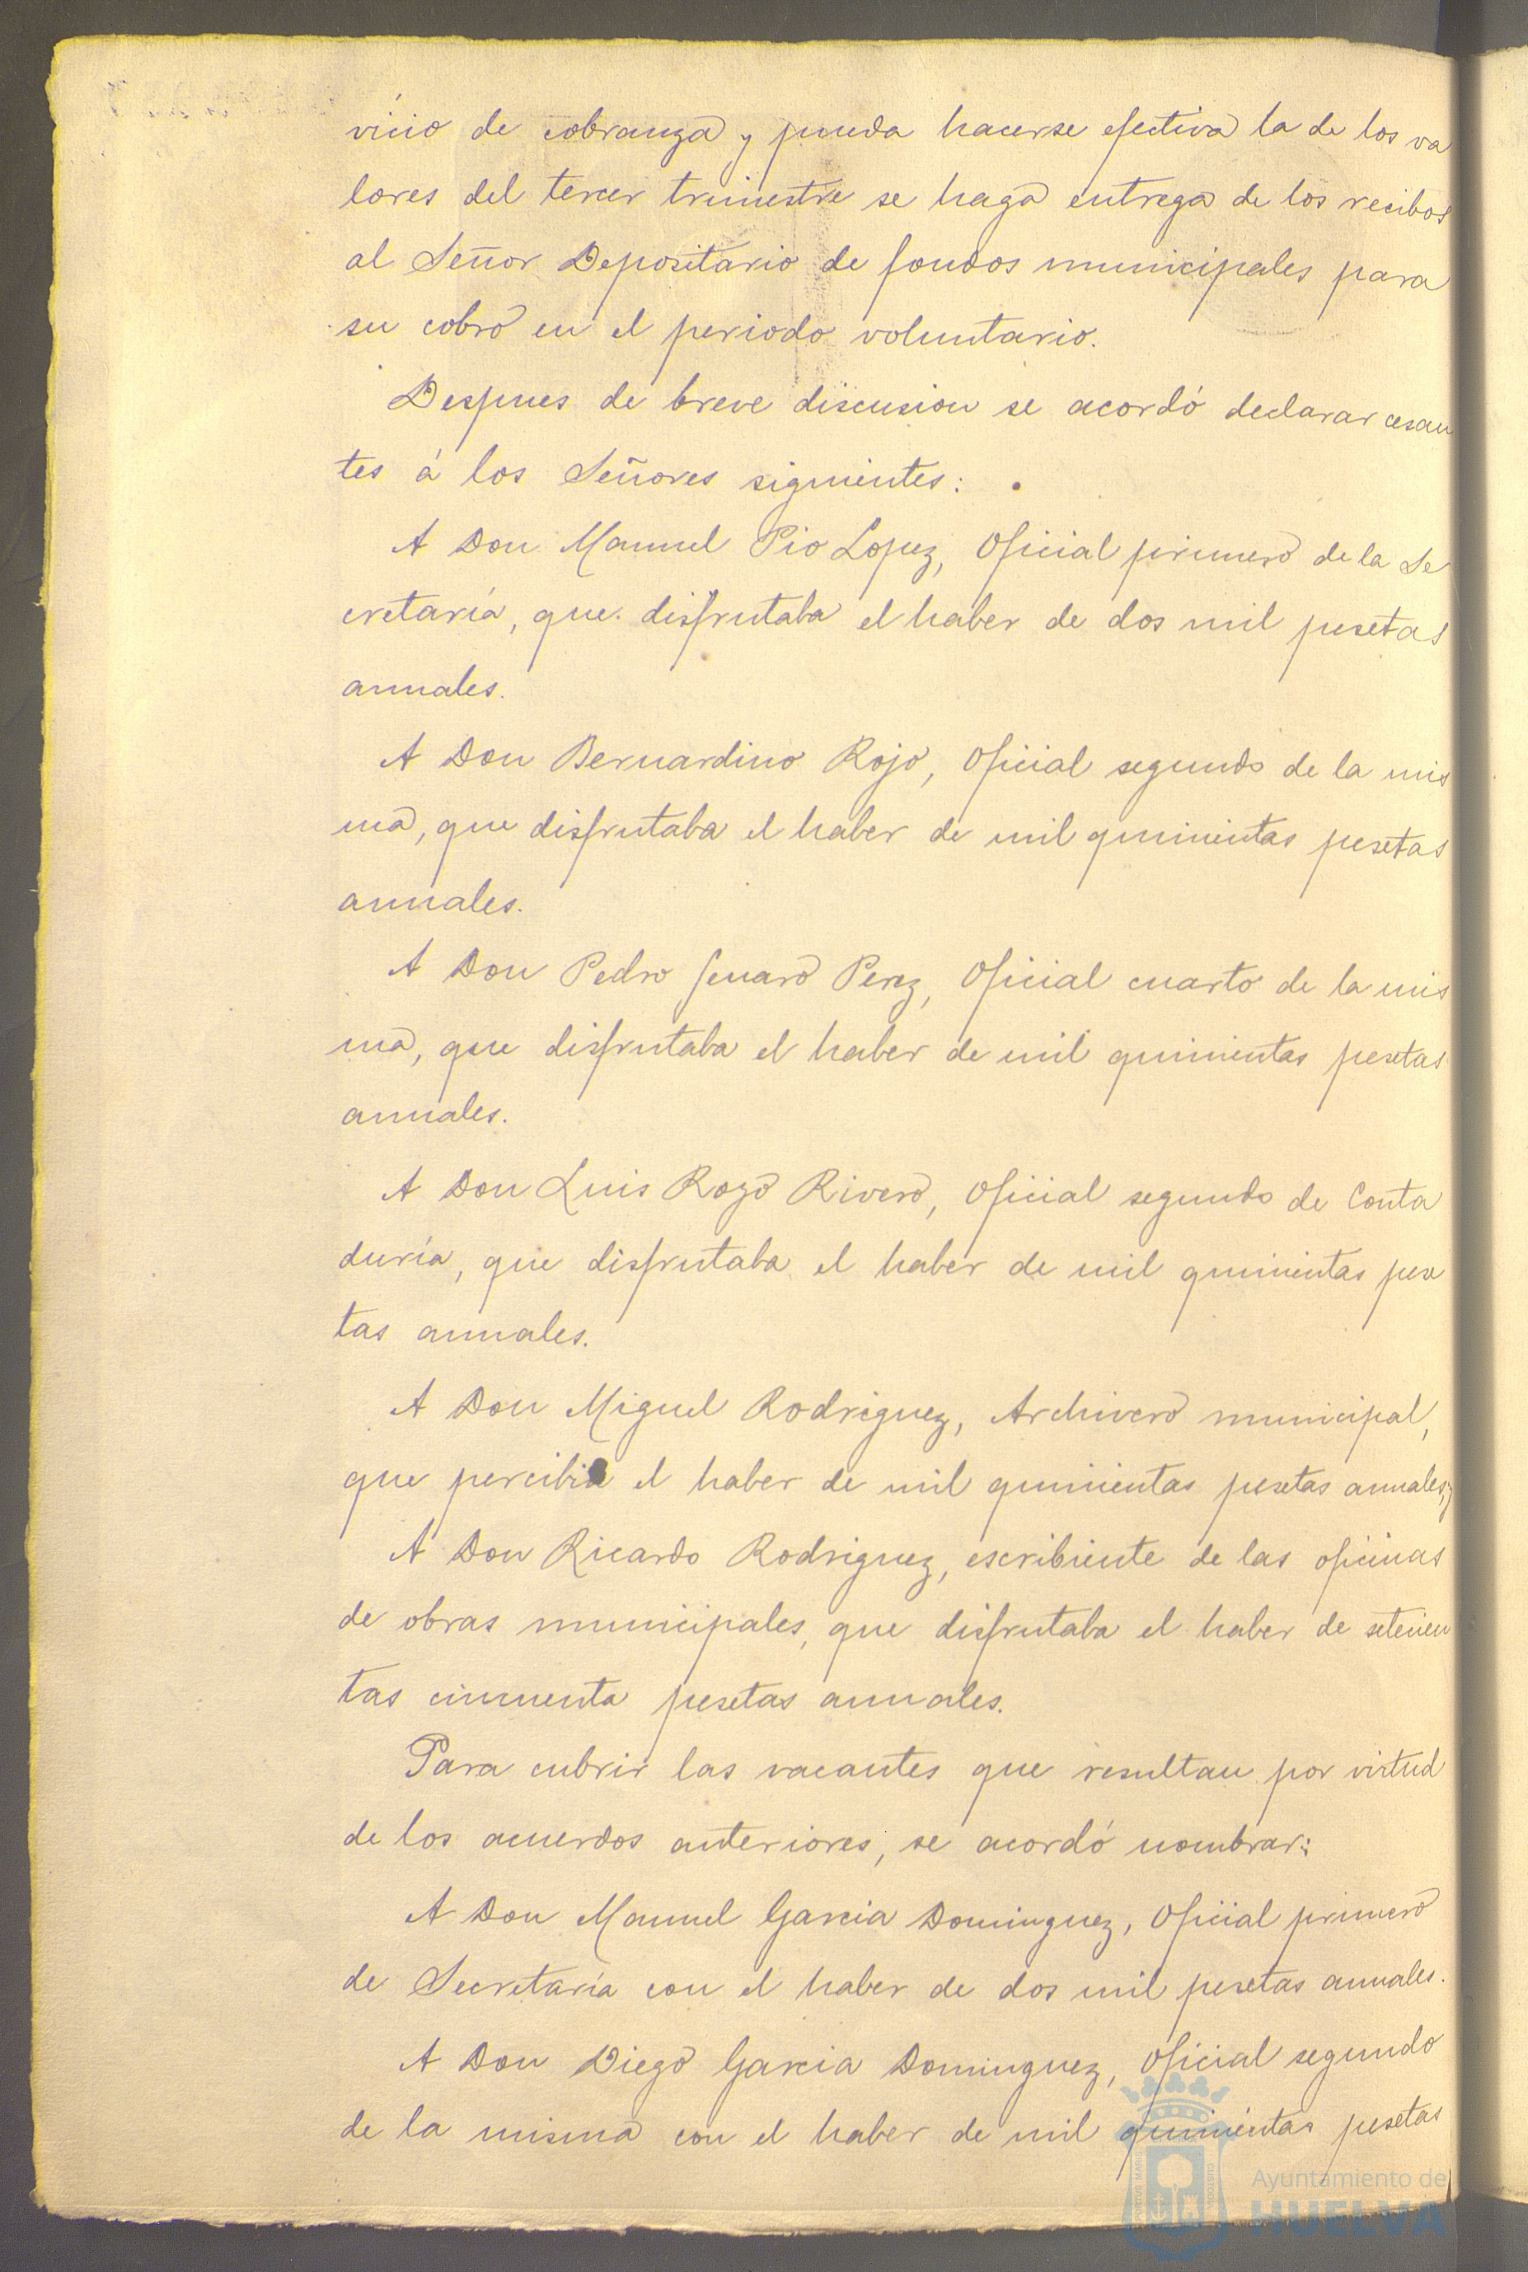 vicio de cobranza y pueda hacerse efectiva la de los va
lores del tercer trimestre se haga entrega de los recibos
al Señor Depositario de fondos municipales para
su cobro en el periodo voluntario.
Despues de breve discusion se acordó declarar cesan
tes á los Señores siguientes:
A Don Manuel Pio Lopez, Oficial primero de la Se
cretaría, que disfrutaba el haber de dos mil pesetas
anuales.
A Don Bernardino Rojo, Oficial segundo de la mis
ma, que disfrutaba el haber de mil quinientas pesetas
anuales.
A Don Pedro Genaro Perez, Oficial cuarto de la mis
ma, que disfrutaba el haber de mil quinientas pesetas
anuales.
A Don Luis Rozo Rivero, Oficial segundo de Conta
duría, que disfrutaba el haber de mil quinientas pese
tas anuales.
A Don Miguel Rodriguez, Archivero municipal,
que percibia el haber de mil quinientas pesetas anuales; y
A Don Ricardo Rodriguez, escribiente de las oficinas
de obras municipales, que disfrutaba el haber de setecien
tas cincuenta pesetas anuales.
Para cubrir las vacantes que resultan por virtud
de los acuerdos anteriores, se acordó nombrar:
A Don Manuel Garcia Dominguez, Oficial primero
de Secretaría con el haber de dos mil pesetas anuales.
A Don Diego Garcia Dominguez, Oficial segundo
de la misma con el haber de mil quinientas pesetas
Ayuntamiento de
HUELVA